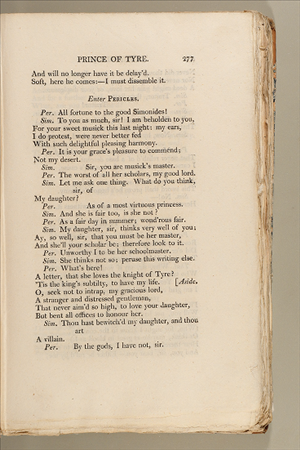 PRINCE OF TYRE. 277
And will no longer have it be delay'd.
Soft, here he comes:—I must dissemble it.
Enter PERICLES.
Per. All fortune to the good Simonides!
Sim. To you as much, sir! I am beholden to you,
For your sweet musick this last night: my ears,
I do protest, were never better fed
With such delightful pleasing harmony.
Per. It is your grace's pleasure to commend;
Not my desert.
Sim. Sir, you are musick's master.
Per. The worst of all her scholars, my good lord.
Sim. Let me ask one thing. What do you think,
sir, of
My daughter?
Per. As of a most virtuous princess.
Sim. And she is fair too, is she not?
Per. As a fair day in summer; wond'rous fair.
Sim. My daughter, sir, thinks very well of you;
Ay, so well, sir, that you must be her master,
And she'll your scholar be; therefore look to it.
Per. Unworthy I to be her schoolmaster.
Sim. She thinks not so; peruse this writing else.
Per. What's here!
A letter, that she loves the knight of Tyre?
'Tis the king's subtilty, to have my life. [Aside.
O, seek not to intrap, my gracious lord,
A stranger and distressed gentleman,
That never aim'd so high, to love your daughter,
But bent all offices to honour her.
Sim. Thou hast bewitch'd my daughter, and thou
art
A villain.
Per. By the gods, I have not, sir.